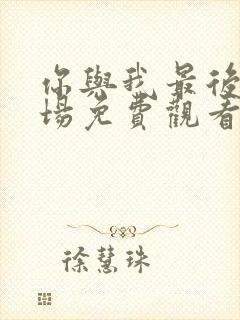 你與我最後
場免費觀看
徐慧珠